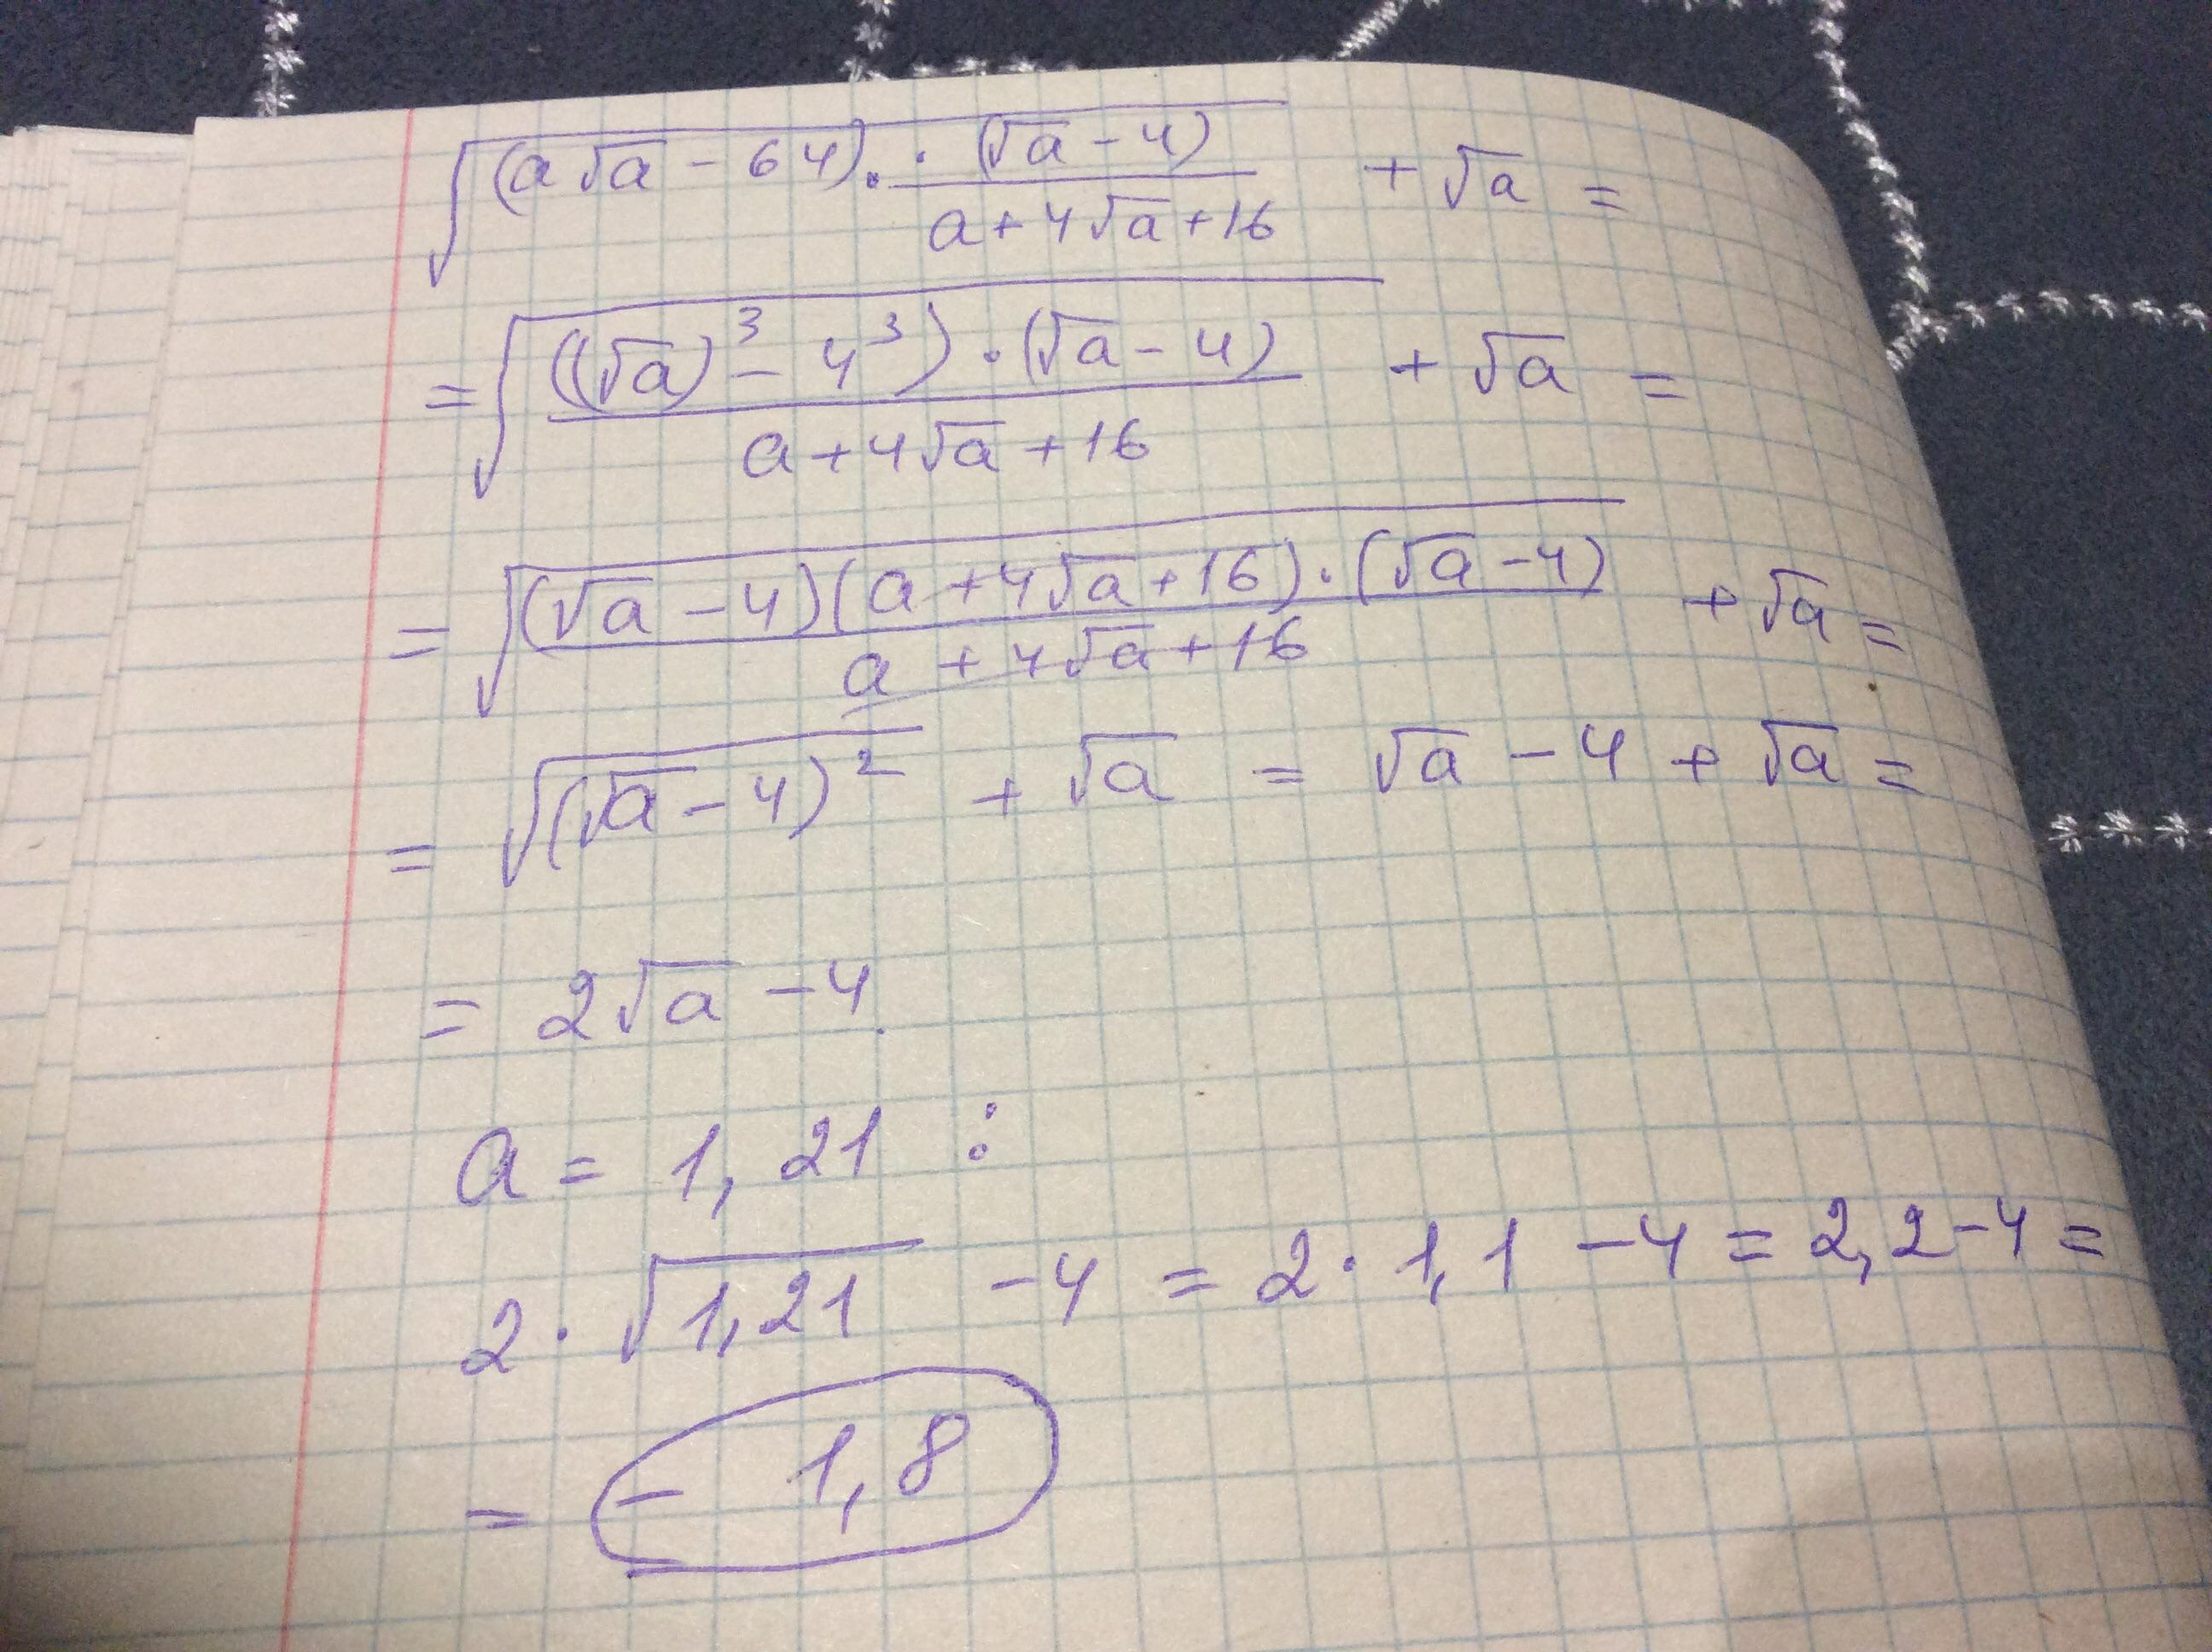 √((a√a - 64) · · (√a - 4) / (a + 4√a + 16)) + √a =
= √(((√a)³ - 4³) · (√a - 4) / (a + 4√a + 16)) + √a =
= √((√a - 4)(a + 4√a + 16) · (√a - 4) / (a + 4√a + 16)) + √a =
= √((√a - 4)²) + √a = √a - 4 + √a =
= 2√a - 4.
a = 1,21 :
2 · √1,21 - 4 = 2 · 1,1 - 4 = 2,2 - 4 =
= - 1,8